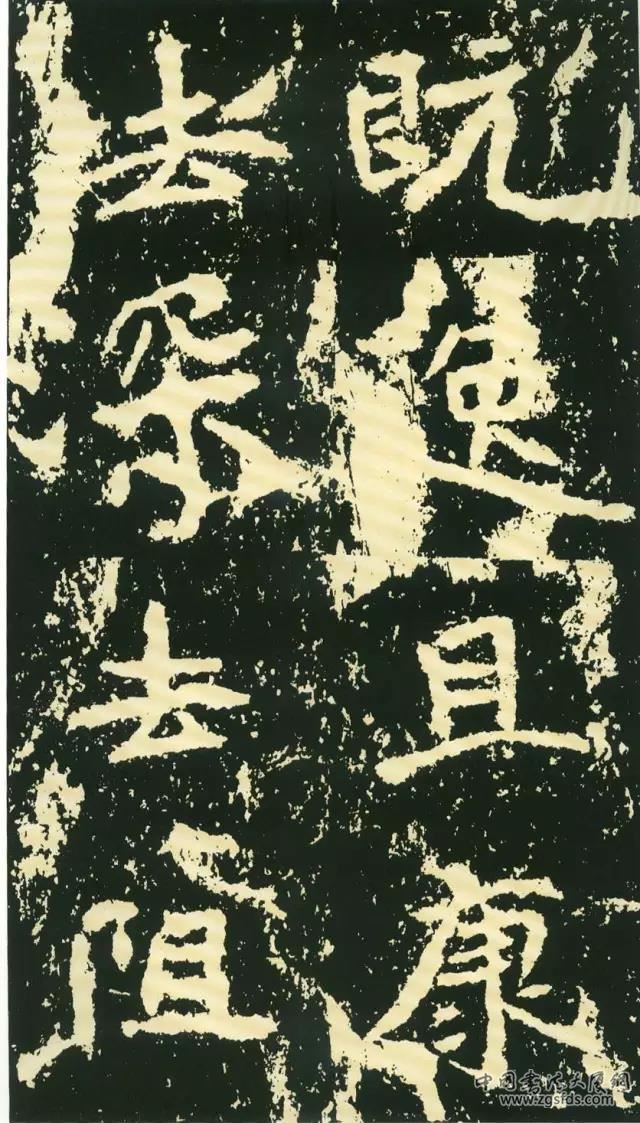 既逸且康
去深去阻
中国书法大厦网
www.zgsfds.com